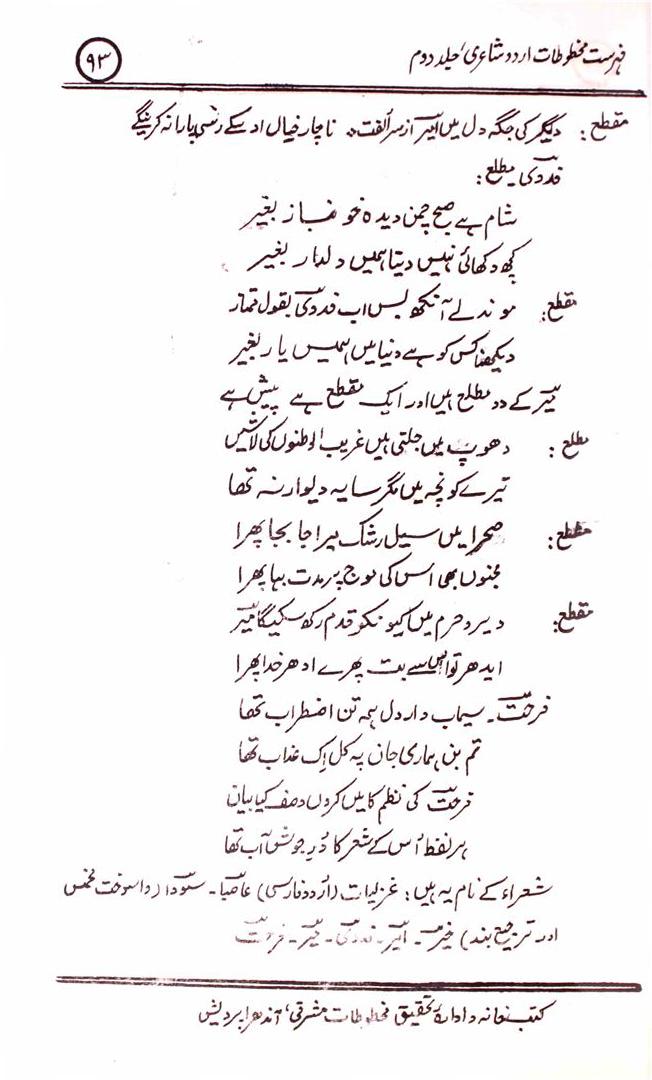 فہرست مخطوطات اردو شاعری، جلد دوم
۹۳
مقطع: دیگر کی جگہ دل میں امیر از سر الفت، ناچار خیال اوسکے یارانہ کرینگے
فدوی مطلع:
شام ہے صبح چمن دیدہ بغیر
کچھ دکھائی نہیں دیتا ہمیں دلدار بغیر
مقطع: موند لے آنکھ بس اب فدوی بقول
دیکھنا کس کو ہے دنیا میں ہمیں یار بغیر
میر کے دو مطلع ہیں اور ایک مقطع ہے پیش ہے
مطلع: دھوپ میں جلتی ہیں غریب الوطنوں کی لاشیں
تیرے کونچہ میں مگر سایہ دیوار نہ تھا
مطلع: صحرا میں سیل رشک میرا جا بجا پھرا
مجنوں بھی اس کی موج پر مدت بہا پھرا
مقطع: دیر و حرم میں کیونکو قدم رکھ سکیگا میر
ایدھر تو اس سے بت پھرے ادھر خدا پھرا
فرحت ۔ سیماب وار دل ہمہ تن اضطراب تھا
تم بن ہماری جان پہ کل اک عذاب تھا
فرحت کی نظم کا میں کروں وصف کیا بیان
ہر نقط اُس کے شعر کا دُرِ خوش آب تھا
شعراء کے نام یہ ہیں: غزلیات (اردو فارسی) عاصیا ۔ سودا (واسوخت مخمس
اور ترجیع بند) ۔ امیر ۔ فدوی ۔ میر ۔ فرحت
کتب خانہ و ادارۂ تحقیق مخطوطات مشرقی، آندھرا پردیش